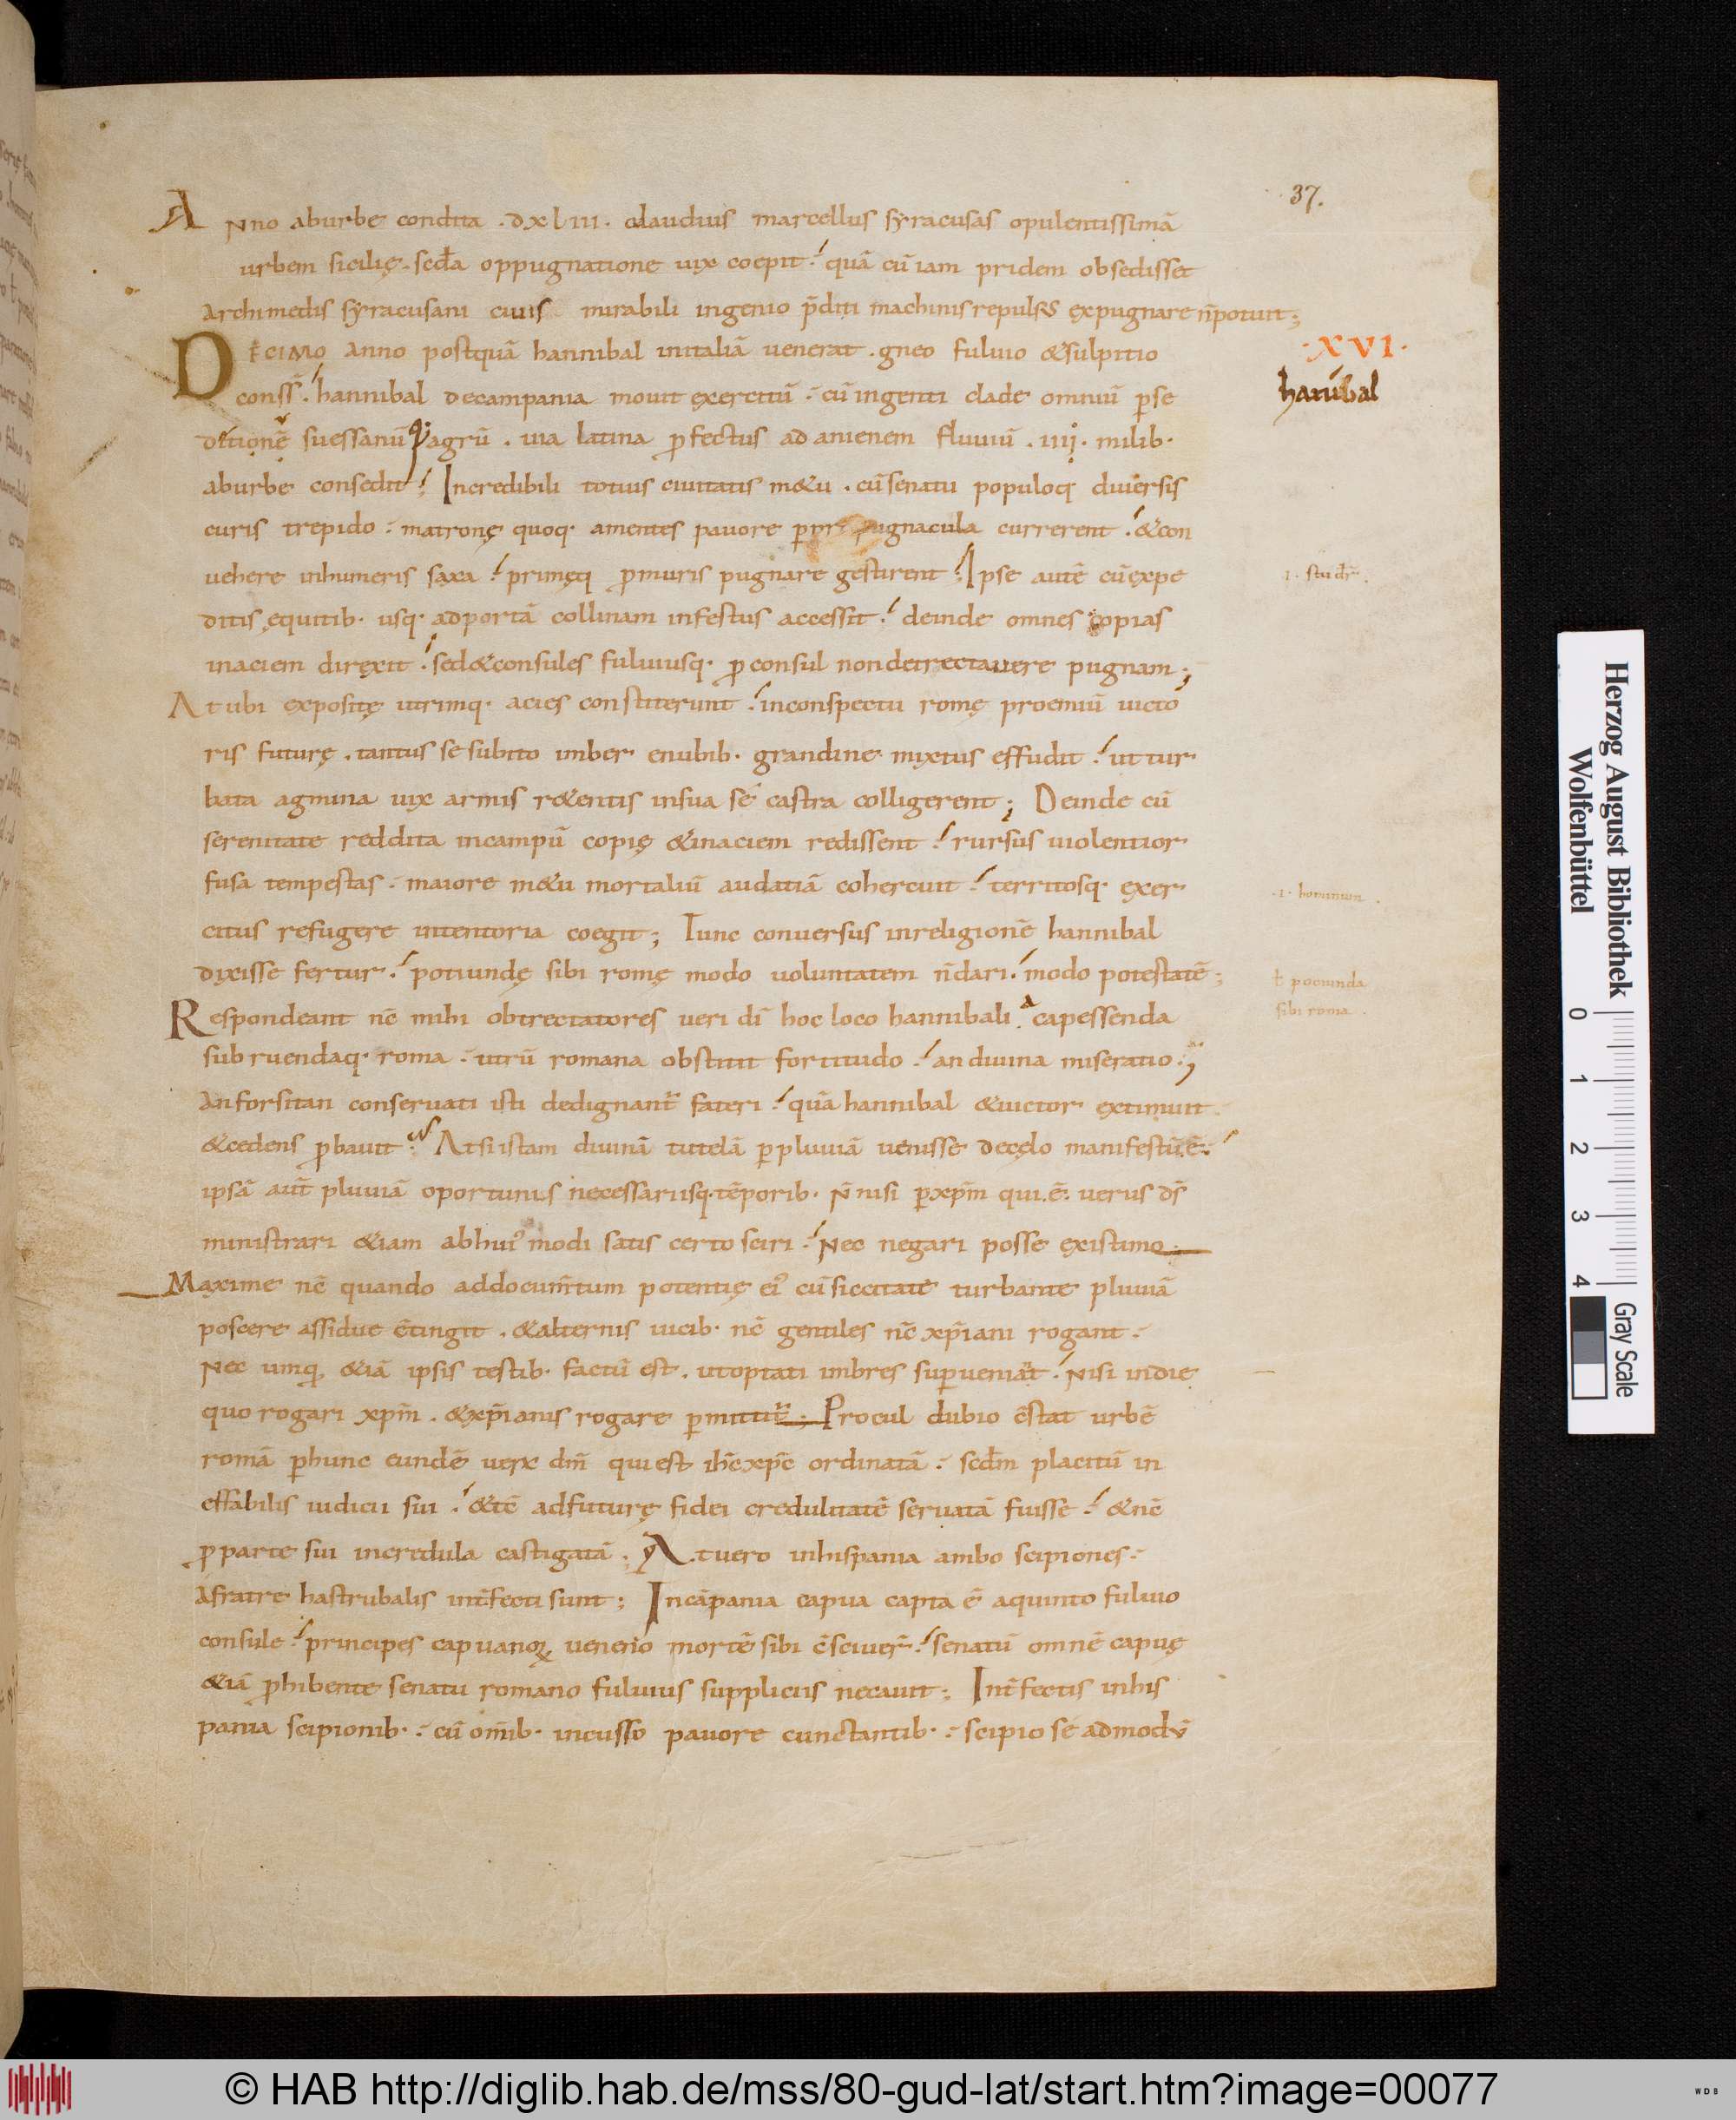 37.
Anno aburbe condita .dxliii. claudius marcellus syracusas opulentissimā
urbem sicilię. sedꝉa oppugnatione uix coepit. quā cū iam pridem obsedisset
Archimedis syracusani ciuis mirabili ingenio p̄diti machinis repulsus expugnare n̄ potuit;
Decimo anno postquā hannibal initaliā uenerat. gneo fuluio &sulpitio
·XVI·
consš. hannibal decampania mouit exercitū. cū ingenti clade omniū ꝑse
hanībal
ditionē suessanūq; agrū. uia latina ꝓfectus ad anienem fluuiū .iii. milib·
aburbe consedit. Incredibili totius ciuitatis m&u. cū senatu populoq· diuersis
curis trepido. matronę quoq· amentes pauore ꝑpropugnacula currerent. &con
uehere inhumeris saxa. primęq ꝓmuris pugnare gestirent. Ipse autē cū expe
ditis equitib· usq· adportā collinam infestus accessit. deinde omnes copias
inaciem direxit. sed&consules fuluiusq· ꝓconsul nondetrectauere pugnam;
At ubi expositę utrimq· acies constiterunt. inconspectu romę proemiū uicto
ris futurę. tantus se subito imber enubib· grandine mixtus effudit. ut tur
bata agmina uix armis r&entis insua se castra colligerent; Deinde cū
serenitate reddita incampū copię &inaciem redissent. rursus uiolentior
fusa tempestas. maiore m&u mortaliū audatiā cohercuit. territosq· exer
·i· hominum.
citus refugere intentoria coegit; Tunc conuersus inreligionē hannibal
dixisse fertur. potiundę sibi romę modo uoluntatem n̄dari. modo potestatē;
ꝉ pociunda
sibi roma.
Respondeant nc̄ mihi obtrectatores ueri dī hoc loco hannibali a capessenda
subruendaq· roma. utrū romana obstitit fortitudo. an diuina miseratio;
Anforsitan conseruati isti dedignant̄ fateri. quā hannibal &uictor extimuit.
&cedens ꝓbauit. At si istam diuinā tutelā ꝑpluuiā uenisse decęlo manifestū.ē.
ipsā aut̄ pluuiā oportunis necessariisq· tēporib· n̄ nisi ꝑxp̄m qui.ē. uerus ds̄
ministrari &iam abhui᾿modi satis certo sciri. Nec negari posse existimo.
Maxime nc̄ quando addocum̄tum potentię ei᾿ cū siccitate turbante pluuiā
poscere assidue c̄tingit. &alternis uicib· nc̄ gentiles nc̄ xp̄iani rogant.
Nec umq &iā ipsis testib· factū est. utoptati imbres suꝑueniāt. Nisi indie
quo rogari xp̄m. &xp̄ianis rogare ꝑmittit̄; Procul dubio c̄stat urbē
romā ꝑhunc eundē uerū dm̄ qui est ih̄c xp̄c ordinatā. sedm̄ placitū in
effabilis iudicii sui. &tc̄ adfuturę fidei credulitatē seruatā fuisse. &nc̄
ꝓparte sui incredula castigatā. At uero inhispania ambo scipiones.
Afratre hastrubalis int̄fecti sunt; Incāpania capua capta ē aquinto fuluio
consule. principes capuanoꝝ uenenó mortē sibi c̄sciuer̄. senatū omnē capuę
&iā ꝓhibente senatu romano fuluius suppliciis necauit; Int̄fectis inhis
pania scipionib·. cū om̄ib· incusso pauore cunctantib·. scipio se admodū
© HAB http://diglib.hab.de/mss/80-gud-lat/start.htm?image=00077
WDB
Herzog August Bibliothek
Wolfenbüttel
0 1 2 3 4
Gray Scale